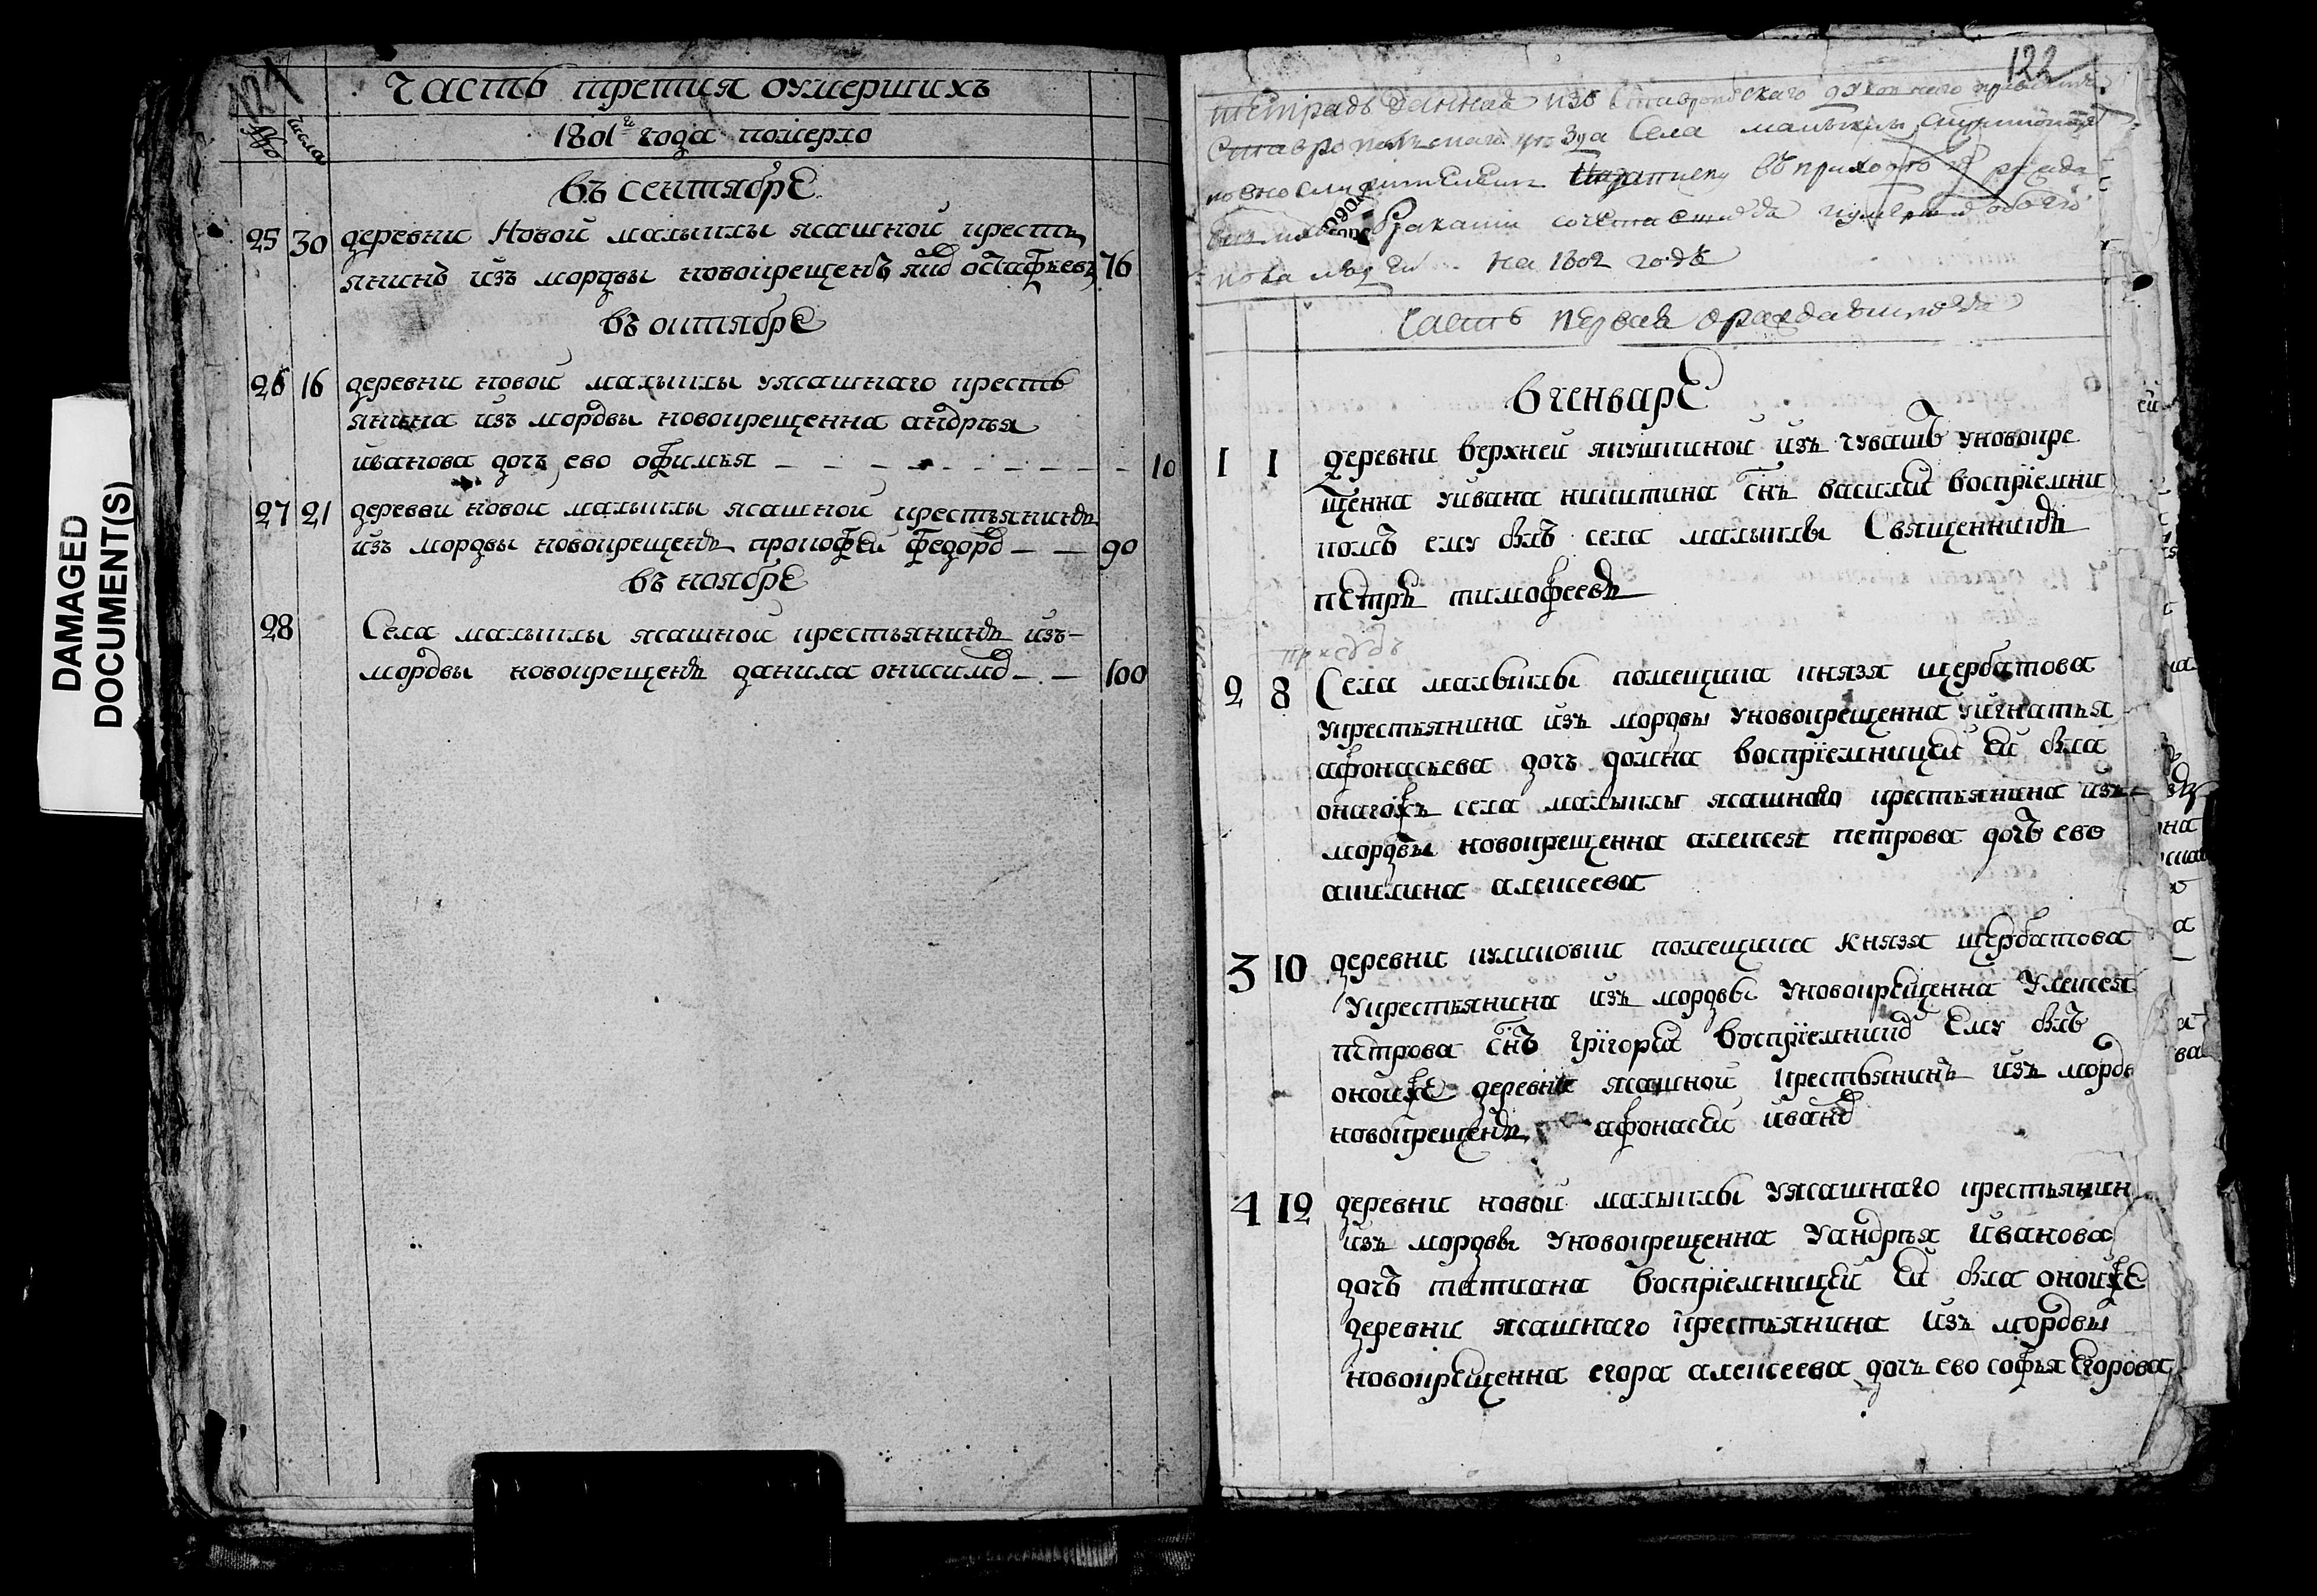 121
Часть третия оумершихъ
№ числа
1801 го года померло
въ сентябрЕ
25 30 деревни Новой малыклы ясашной кресть
янинъ изъ мордвы новокрещенъ яко остафьевъ 76
въ октябрЕ
26 16 деревни новой малыклы уясашнаго кресть
янина изъ мордвы новокрещенна андрѣя
иванова дочь ево офимья 10
27 21 деревни новой малыклы ясашной крестьянинъ
изъ мордвы новокрещенъ прокофей федоровъ 90
въ ноябрЕ
28 Села малыклы ясашной крестьянинъ изъ
мордвы новокрещенъ данила онисимовъ 100
DAMAGED
DOCUMENT(S)
122
тетрадь данная изъ Ставропольскаго духовнаго правления
Ставропольскаго уезда Села малыклы
въ приходе
Бракамъ сочетавшихся
на 1802 годъ
Часть первая о раждающихся
в генварЕ
1 1 деревни верхней якушкиной изъ чувашъ уновокре
щенна уивана никитина снъ василей воспрїемни
комъ ему былъ села малыклы Священникъ
пЕтръ тимофеевъ
2 8 Села малыклы помещика князя щербатова
укрестьянина изъ мордвы уновокрещенна уигнатья
афонасьева дочь домна воспрїемницей ей была
онагожъ села малыклы ясашнаго крестьянина изъ
мордвы новокрещенна алексея петрова дочь ево
акилина алексеева
3 10 деревни куликовки помещика князя щербатова
укрестьянина изъ мордвы уновокрещенна улексея
петрова снъ григорей воспрїемникъ Ему былъ
онойжЕ деревни ясашной крестьянинъ изъ мордв
новокрещенъ афонасей ивановъ
4 12 деревни новой малыклы уясашнаго крестьянин
изъ мордвы уновокрещенна уандрѣя иванова
дочь татиана воспрїемницей Ей была онойжЕ
деревни ясашнаго крестьянина изъ мордвы
новокрЕщенна егора алексеева дочь ево софья Егорова